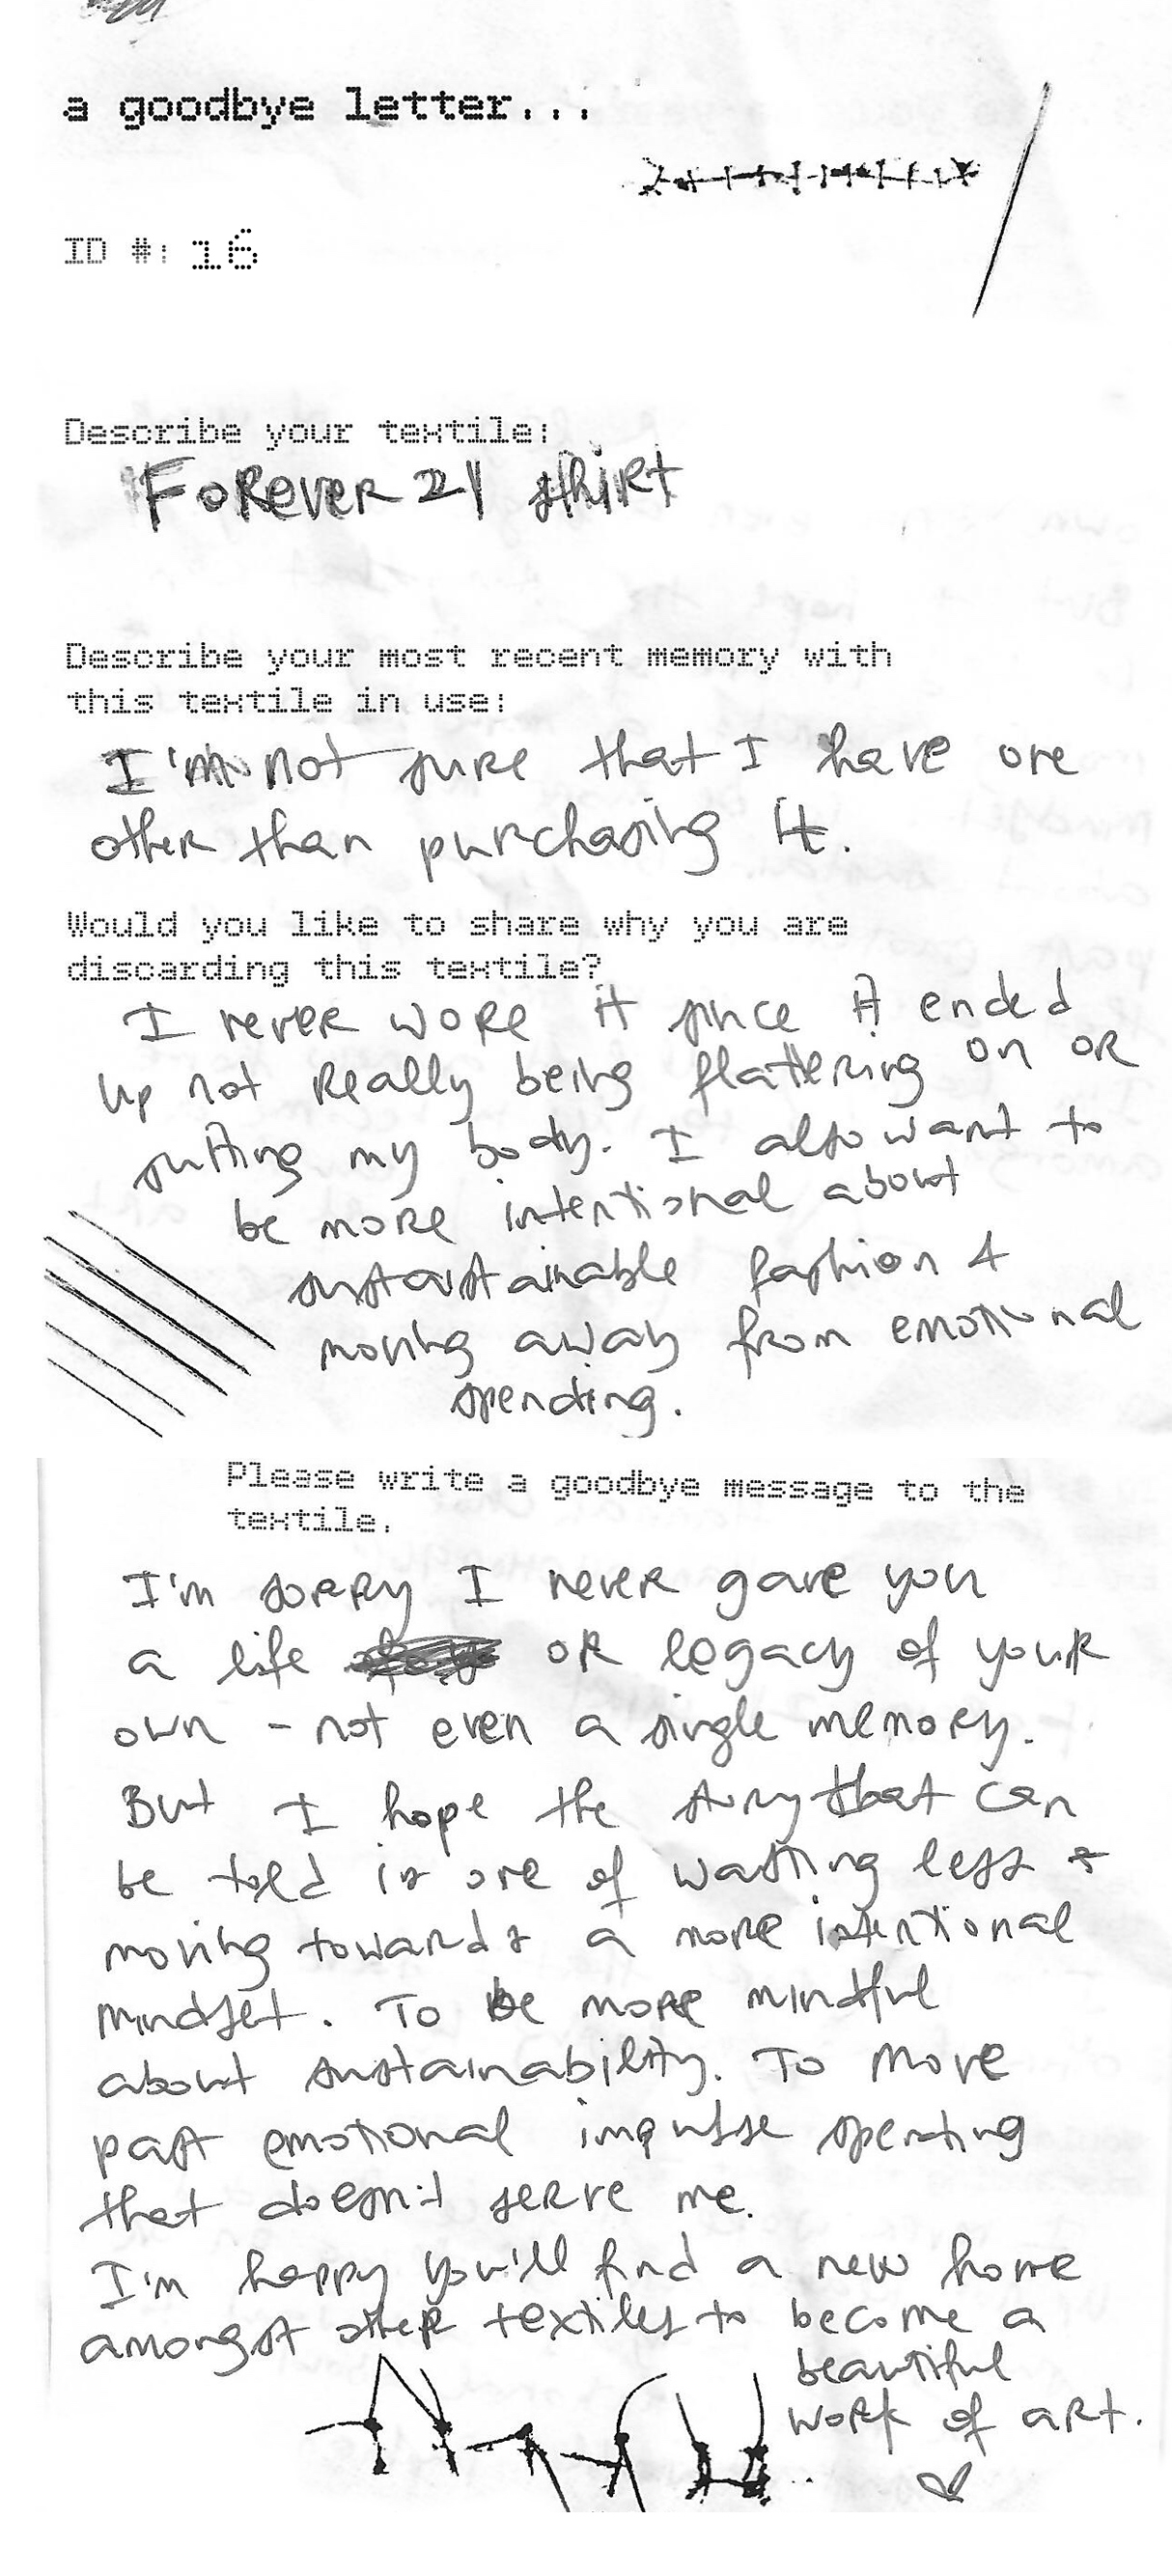 a goodbye letter...
ID #: 16
Describe your textile:
Forever 21 shirt
Describe your most recent memory with
this textile in use:
I'm not sure that I have one
other than purchasing it.
Would you like to share why you are
discarding this textile?
I never wore it since it ended
up not really being flattering on or
suiting my body. I also want to
be more intentional about
sustainable fashion &
moving away from emotional
spending.
Please write a goodbye message to the
textile.
I'm sorry I never gave you
a life or legacy of your
own - not even a single memory.
But I hope the story that can
be told is one of wasting less &
moving towards a more intentional
mindset. To be more mindful
about sustainability. To move
past emotional impulse spending
that doesn't serve me.
I'm happy you'll find a new home
amongst other textiles to become a
beautiful
work of art.